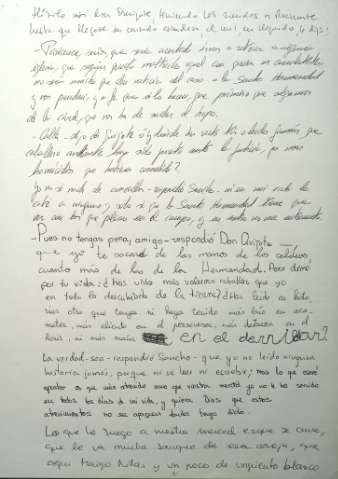 Hízolo así Don Quijote teniendo las riendas a Rocinante
hasta que llegase su cansado escudero el cual, en llegando, le dijo:
- Paréceme, señor, que sería acertado irnos a retraer a alguna
iglesia, que según quedó maltrecho aquel con quien os combatisteis,
no será mucho que den noticia del caso a la Santa Hermandad
y nos prendan; y a fe que si lo hacen, que primero que salgamos
de la cárcel, que nos ha de sudar el hopo.
- Calla - dijo don Quijote ¿Y dónde has visto tú, o leído jamás, que
caballero andante haya sido puesto ante la justicia, por más
homicidios que hubiese cometido?
Yo no sé nada de - respondió Sancho - ni en mi vida le
caté a ninguno; solo sé que la Santa Hermandad tiene que
ver con los que pelean en el campo, y en no me entremeto.
- Pues no tengas pena, amigo - respondió Don Quijote
que yo te sacaré de las manos de los caldeos,
cuanto más de las de la Hermandad. Pero dime
por tu vida: ¿Has visto más valeroso caballero que yo
en todo lo descubierto de la tierra? ¿Has leído en
otro que tenga ni haya tenido más brío en aco-
meter, más aliento en el perseverar, más destreza en el
herir, ni más maña en el derribar?
La verdad sea - respondió Sancho - que yo no leído ninguna
historia jamás, porque ni sé leer ni escribir; mas lo que osaré
apostar es que más atrevido amo que vuestra merced yo no le he servido
en todos los días de mi vida, y quiera Dios que estos
atrevimientos no se paguen donde tengo dicho.
Lo que le ruego a vuestra merced es que se cure,
que le va mucha sangre de esa oreja, que
aquí traigo hilas y un poco de ungüento blanco